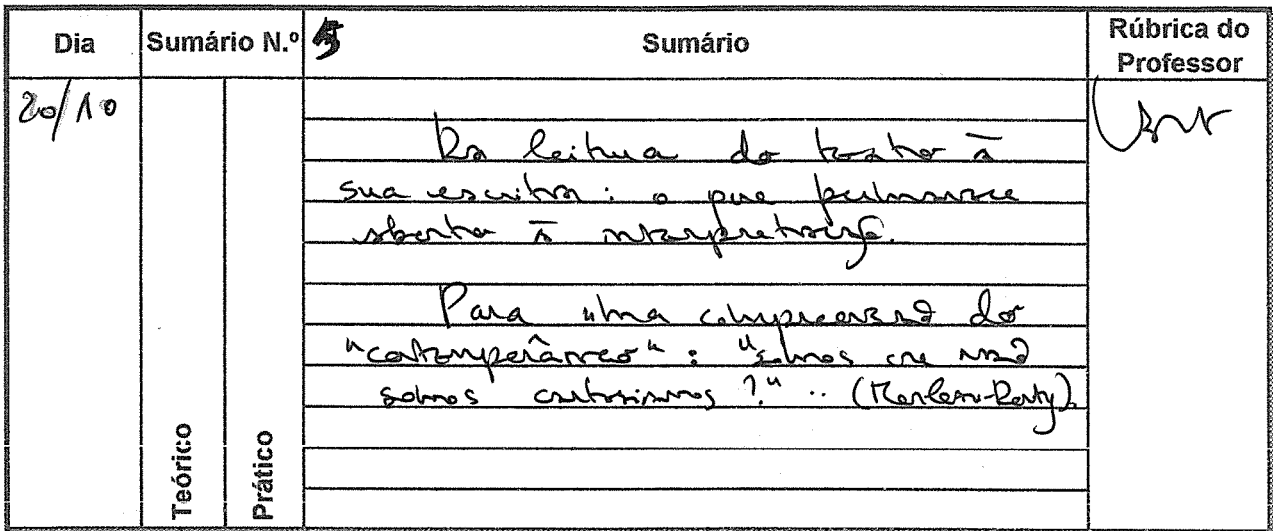 Dia Sumário N.º 5 Sumário Rúbrica do Professor
20/10
Da leitura do texto à
sua escrita: o que permanece
aberto à interpretação.
Para uma compreensão do
"contemporâneo": "somos ou não
somos cartesianos?" .. (Merleau-Ponty).
Teórico
Prático